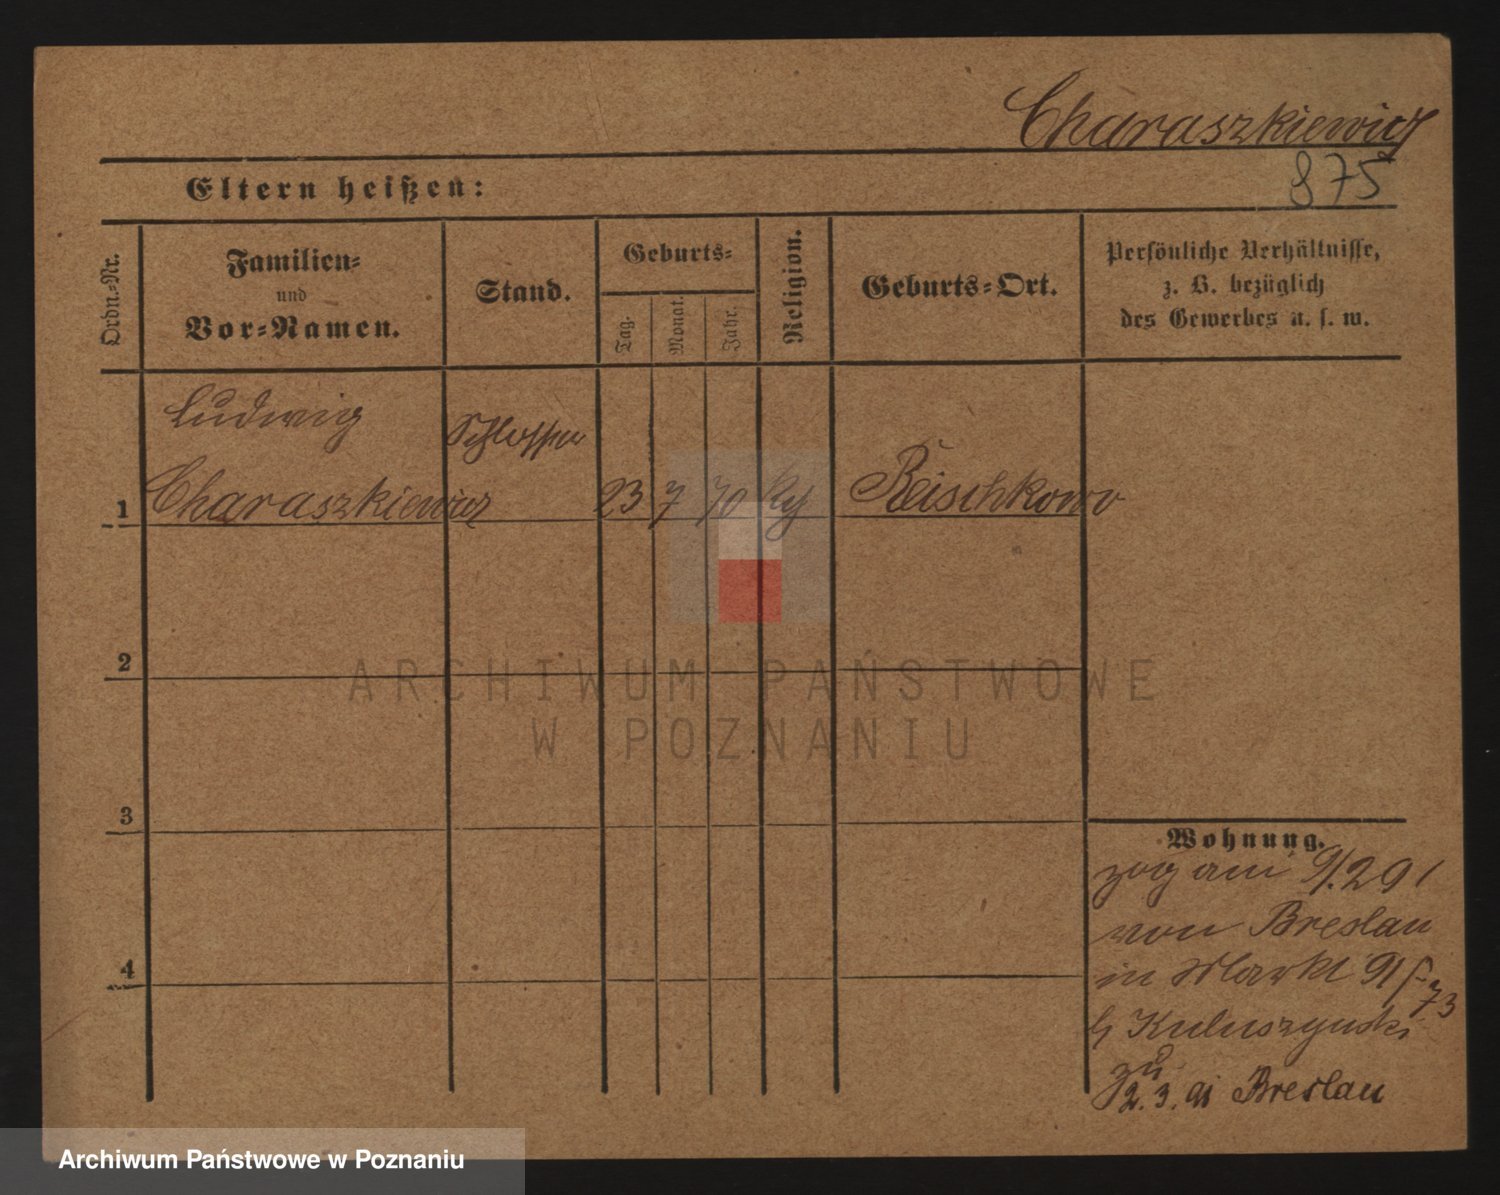 Charaszkiewicz
875
Eltern heißen:
Ordn.-Nr.
Familien-
und
Vor-Namen.
Stand.
Geburts-
Tag.
Monat.
Jahr.
Religion.
Geburts-Ort.
Persönliche Verhältnisse,
z. B. bezüglich
des Gewerbes u. s. w.
Ludwig
Schlosser
1
Charaszkiewicz
23 7 70
Reischkowo
2
ARCHIWUM PAŃSTWOWE
W POZNANIU
3
Wohnung.
zog am 9/.2 91
von Breslau
in Markt 91
73
zu
2.3.91 Breslau
4
Archiwum Państwowe w Poznaniu